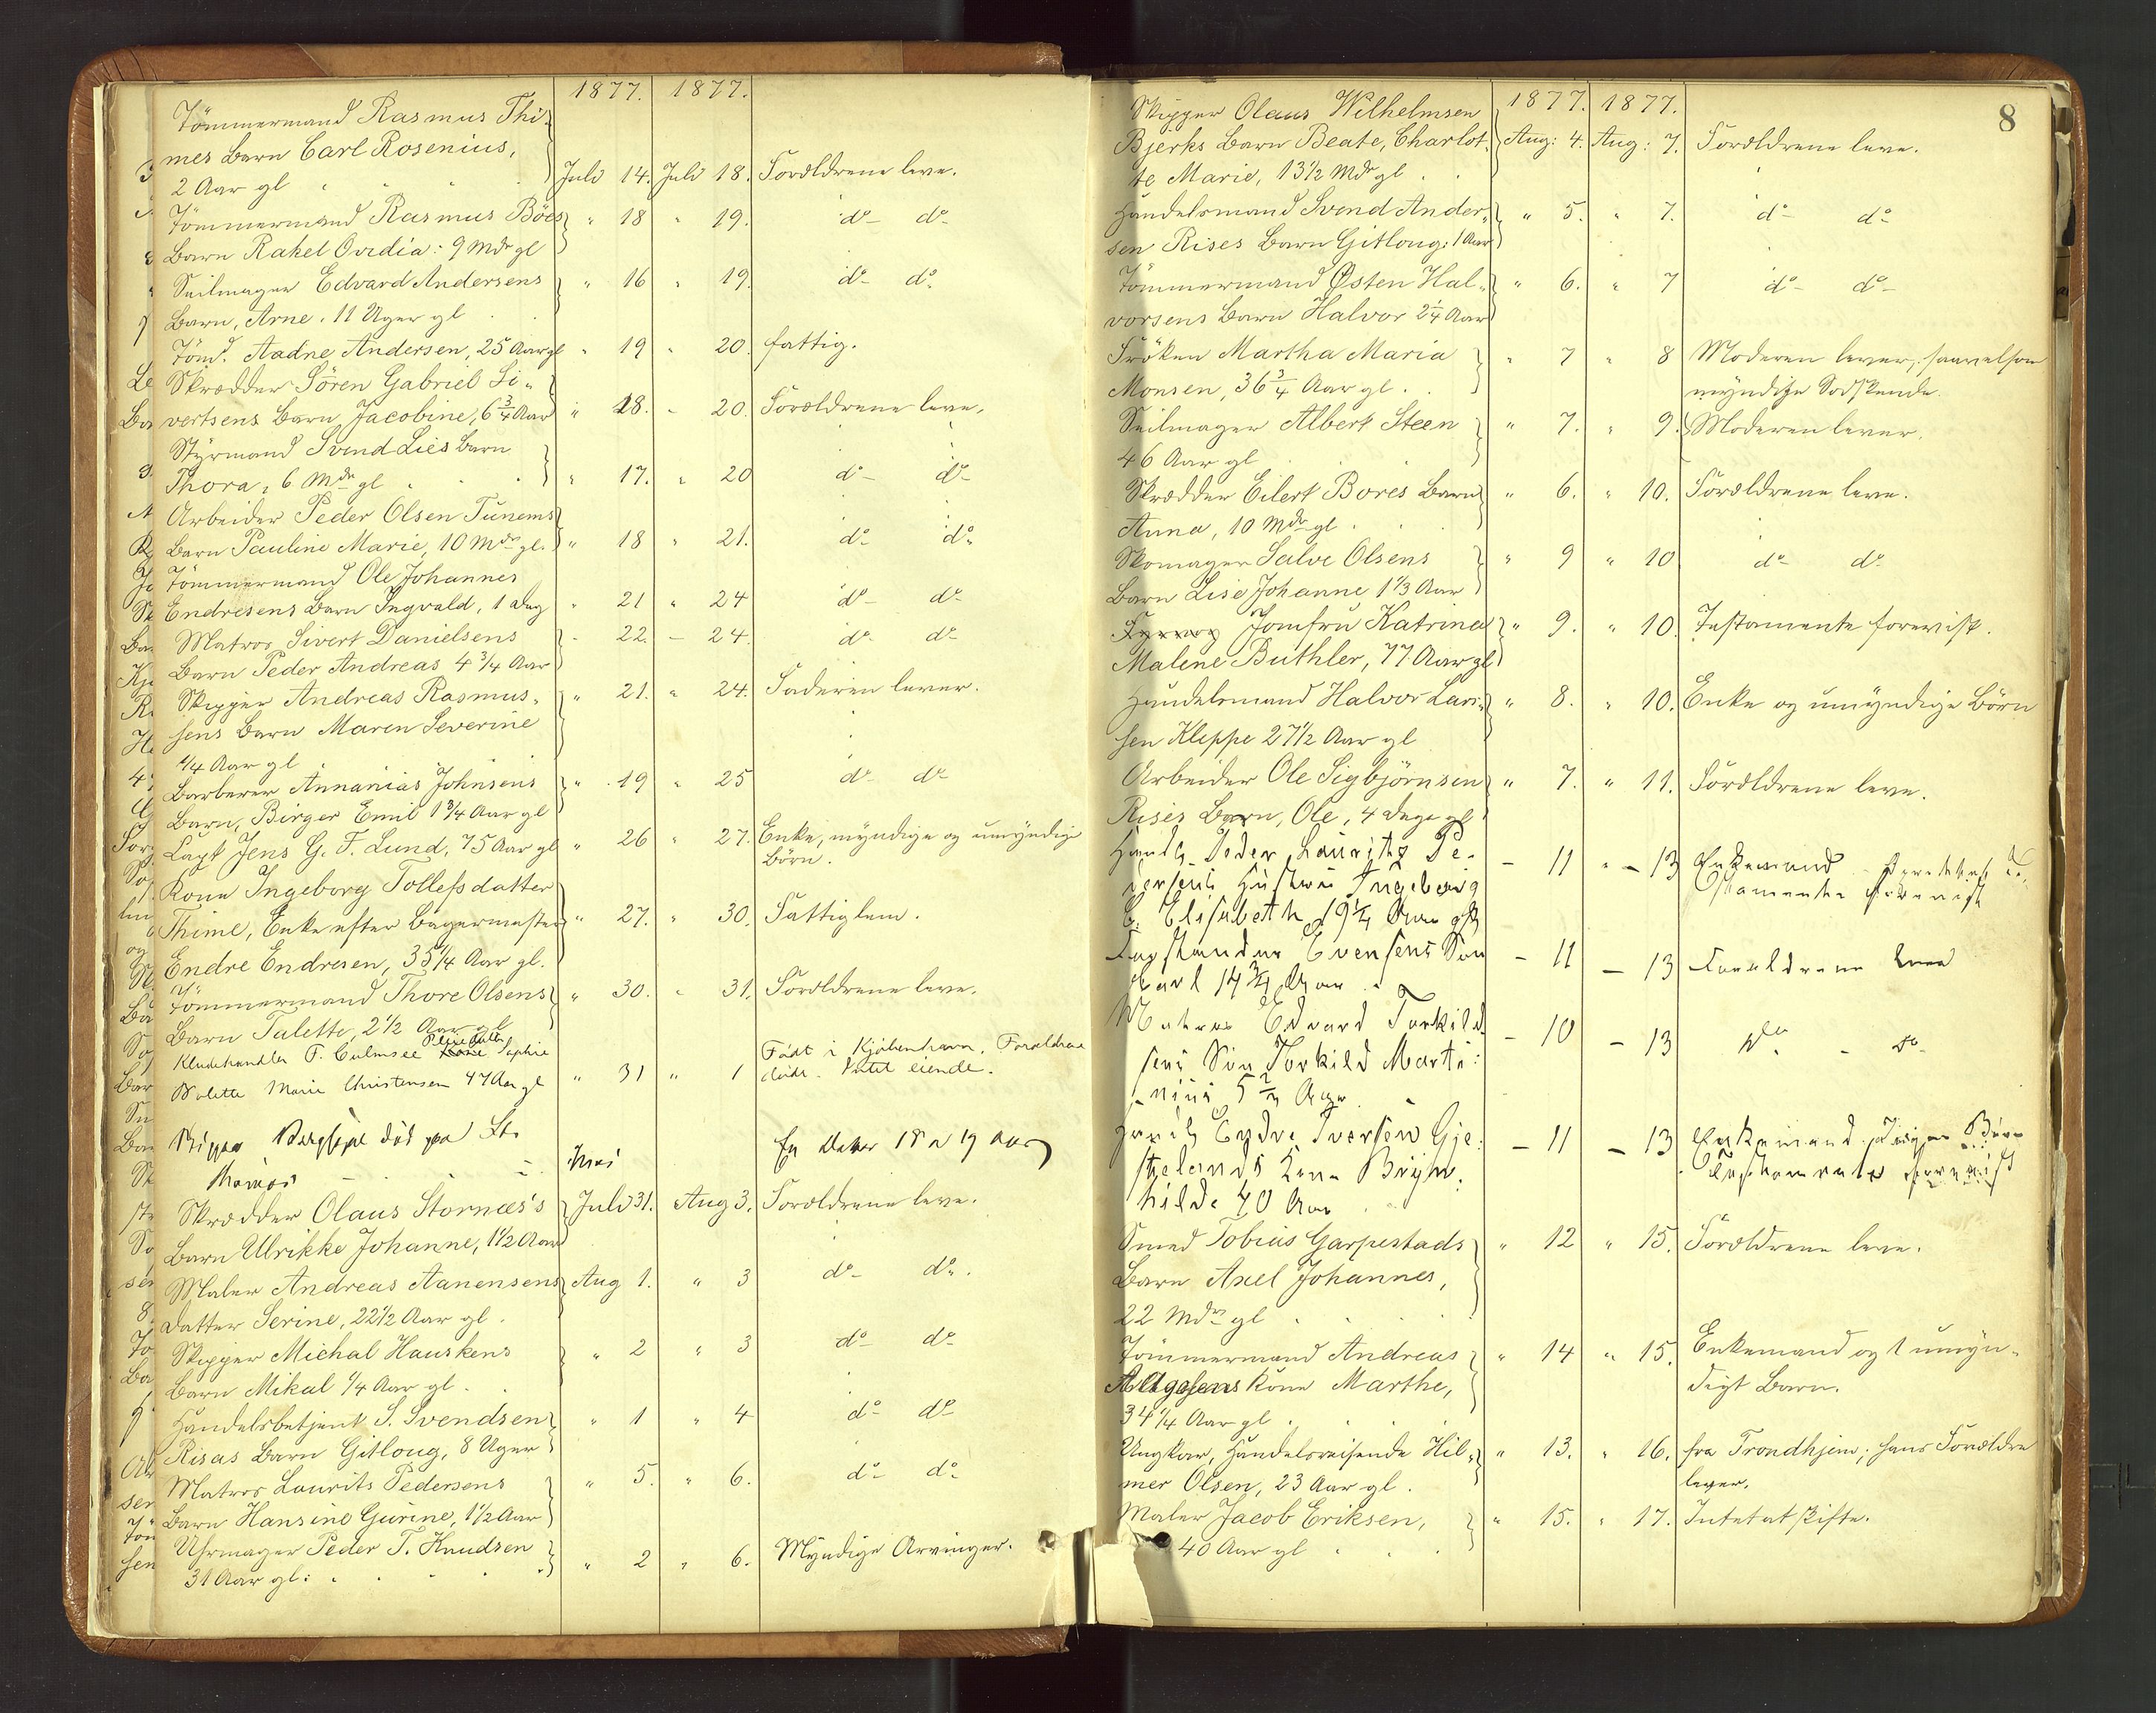 1877. 1877.
Tömmermand Rasmus Thi-
mes Barn Carl Rosenius,
2 Aar gl Juli 14. Juli 18. Forældrene leve.
Tömmermand Rasmus Böes " 18 " 19. do do
Barn Rakel Ovidia: 9 Mdr gl
Seilmager Edvard Andersens " 16 " 19. do do
Barn, Arne, 11 Uger gl
Tömd. Aadne Andersen, 25 Aar gl " 19 " 20. fattig.
Skrædder Sören Gabriel Si-
vertsens Barn Jacobine, 6 3/4 Aar " 18. " 20. Forældrene leve.
Styrmand Svend Lies Barn
Thora, 6 Mdr gl " 17. " 20 do do
Arbeider Peder Olsen Tunems
Barn Pauline Marie, 10 Mdr gl. " 18 " 21. do do
Tömmermand Ole Johannes
Endresens Barn Ingvald, 1 Dag " 21 " 24 do do
Matros Sivert Danielsens - 22. - 24. do do
Barn Peder Andreas 4 3/4 Aar
Skipper Andreas Rasmus- " 21. " 24. Faderen lever.
sens Barn Maren Severine
1/4 Aar gl
Barberer Annanias Johnsens " 19 " 25 do do
Barn, Birger Emil 1 3/4 Aar gl
Capt Jens G. F. Lund, 75 Aar gl " 26 " 27. Enke, myndige og umyndige
Börn.
Kone Ingeborg Tollefsdatter
Thime, Enke efter Bagermester " 27. " 30. Fattiglem.
Endre Endresen, 35 1/4 Aar gl.
Tömmermand Thore Olsens " 30. " 31. Forældrene leve.
Barn Talette, 2 1/2 Aar gl
Kludehandler F. Culmsee Sophie
Marie Christensen 47 Aar gl " 31 " 1 Født i Kjöbenhavn. Forældrene
döde. Intet eiende.
Skipper död paa St.
Thomas Mai En Datter 18 a 19 Aar
Skrædder Olaus Stornæs's Juli 31. Aug 3. Forældrene leve.
Barn Ulrikke Johanne, 1 1/2 Aar
Maler Andreas Aanensens Aug 1. " 3 do do.
Datter Serine, 22 1/2 Aar gl.
Skipper Michal Hauskens " 2 " 3 do do
Barn Mikal 1/4 Aar gl.
Handelsbetjent S. Svendsen " 1 " 4 do do
Risas Barn Gitloug, 8 Uger
Matros Laurits Pedersens " 5. " 6. do do
Barn Hansine Gurine, 1 1/2 Aar
Uhrmager Peder T. Knudsen " 2 " 6. Myndige Arvinger.
31 Aar gl:
8
1877. 1877.
Skipper Olaus Wilhelmsen
Bjerks Barn Beate, Charlot- Aug: 4. Aug: 7. Forældrene leve.
te Marie, 13 1/2 Mdr gl
Handelsmand Svend Ander- " 5. " 7. do do
sen Rises Barn Gitloug: 1 Aar
Tömmermand Østen Hal- " 6. " 7 do do
vorsens Barn Halvor 2 1/4 Aar
Fröken Martha Maria " 7 " 8 Moderen lever, saavelsom
Monsen, 36 3/4 Aar gl. myndige Sødskende.
Seilmager Albert Steen " 7. " 9. Moderen lever.
46 Aar gl
Skrædder Eilert Bores Barn " 6. " 10. Forældrene leve.
Anna, 10 Mdr gl
Skomager Salve Olsens " 9 " 10 do do
Barn Lise Johanne 1 1/3 Aar
Jomfru Katrine " 9. " 10. Testamente forevist.
Malene Buthler, 77 Aar gl
Handelsmand Halvor Lar- " 8. " 10. Enke og umyndige Börn
sen Kleppe 27 1/2 Aar gl
Arbeider Ole Sigbjörnsen " 7. " 11. Forældrene leve.
Rises Barn, Ole, 4 Dage gl
Handls. Peder Lauritz Pe- - 11 " - 13 Enkemand
dersens Hustru Ingeborg stamente forevist
E. Elisabeth Aar gl
Evensens Søn - 11 - 13 Forældrene leve
Carl 14 3/4 Aar
Matros Edvard Torkild- - 10 - 13 do - do
sens Søn Torkild Marti-
nius Aar
Handls Endre Iversen Gje- - 11 - 13 Enkemand. Ingen Børn
stelands Kone Bryn- Testamente forevist
hilde 70 Aar
Smed Tobias Garpestads " 12 " 15. Forældrene leve.
Barn Axel Johannes,
22 Mdr gl
Tömmermand Andreas " 14 " 15. Enkemand og 1 umyn-
Aagesens Kone Marthe, digt Barn.
34 1/4 Aar gl
Ungkar, Handelsreisende Hil- " 13. " 16. fra Trondhjem; hans Forældre
mer Olsen, 23 Aar gl. lever.
Maler Jacob Eriksen, " 15. " 17. Intet at skifte.
40 Aar gl